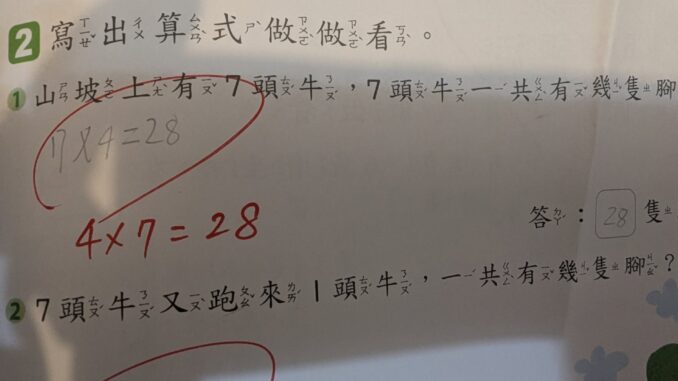 2 寫出算式,做做看。
1 山坡上有7頭牛,7頭牛一共有幾隻腳
7×4=28
4×7=28
答:28隻
2 7頭牛又跑來1頭牛,一共有幾隻腳?